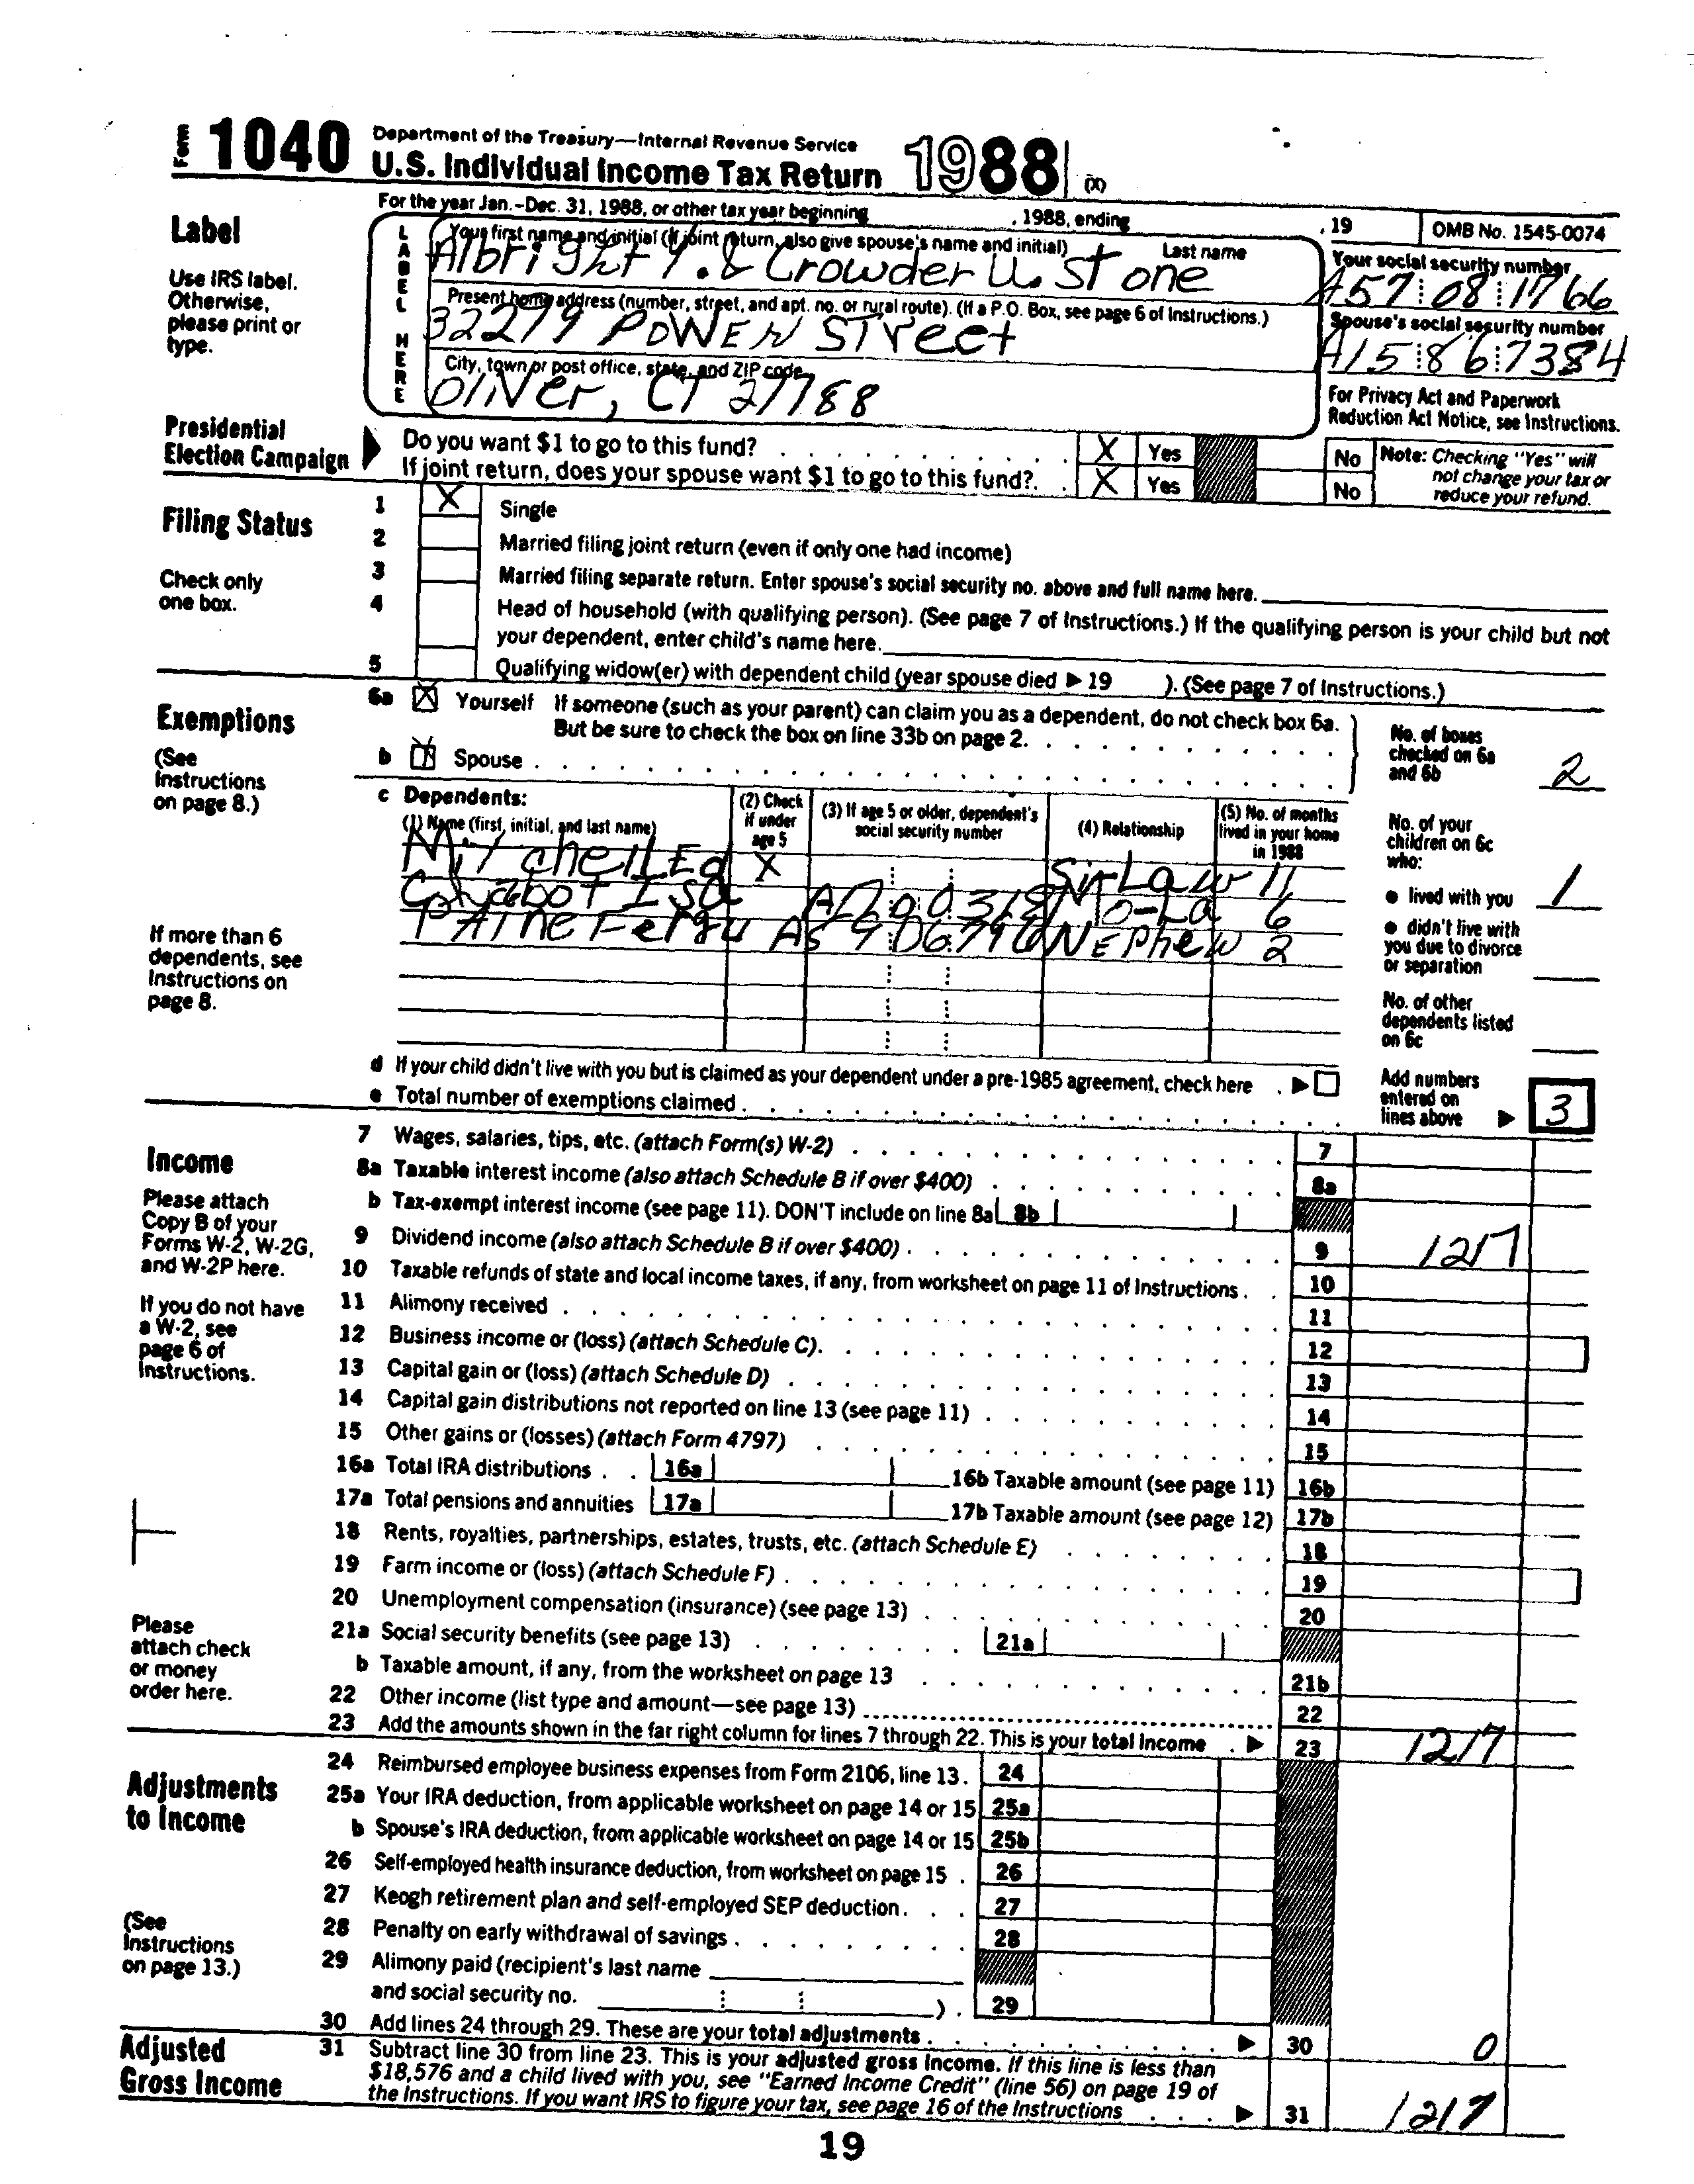 Form 1040 Department of the Treasury—Internal Revenue Service
U.S. Individual Income Tax Return 1988 (X)
For the year Jan.-Dec. 31, 1988, or other tax year beginning , 1988, ending , 19 OMB No. 1545-0074
Label
Use IRS label. Otherwise, please print or type.
LABEL HERE
Your first name and initial (if joint return, also give spouse's name and initial) Last name
Albright Y. & Crowder U. Stone
Your social security number
A57 08 1766
Present home address (number, street, and apt. no. or rural route). (If a P.O. Box, see page 6 of Instructions.)
32279 Power Street
Spouse's social security number
A15 86 7384
City, town or post office, state, and ZIP code
Oliver, CT 27788
For Privacy Act and Paperwork Reduction Act Notice, see Instructions.
Presidential Election Campaign
Do you want $1 to go to this fund? X Yes No
If joint return, does your spouse want $1 to go to this fund? X Yes No
Note: Checking "Yes" will not change your tax or reduce your refund.
Filing Status
Check only one box.
1 X Single
2 Married filing joint return (even if only one had income)
3 Married filing separate return. Enter spouse's social security no. above and full name here.
4 Head of household (with qualifying person). (See page 7 of Instructions.) If the qualifying person is your child but not
your dependent, enter child's name here.
5 Qualifying widow(er) with dependent child (year spouse died ▶ 19 ). (See page 7 of Instructions.)
Exemptions
(See Instructions on page 8.)
6a X Yourself If someone (such as your parent) can claim you as a dependent, do not check box 6a.
But be sure to check the box on line 33b on page 2.
b X Spouse
No. of boxes checked on 6a and 6b 2
c Dependents:
(1) Name (first, initial, and last name) (2) Check if under age 5 (3) If age 5 or older, dependent's social security number (4) Relationship (5) No. of months lived in your home in 1988
Mitchell Ed X 11
6
Paine Fergu Nephew 2
If more than 6 dependents, see Instructions on page 8.
No. of your children on 6c who:
● lived with you 1
● didn't live with you due to divorce or separation
No. of other dependents listed on 6c
d If your child didn't live with you but is claimed as your dependent under a pre-1985 agreement, check here ▶
e Total number of exemptions claimed
Add numbers entered on lines above ▶ 3
Income
Please attach Copy B of your Forms W-2, W-2G, and W-2P here.
If you do not have a W-2, see page 6 of Instructions.
Please attach check or money order here.
7 Wages, salaries, tips, etc. (attach Form(s) W-2) 7
8a Taxable interest income (also attach Schedule B if over $400) 8a
b Tax-exempt interest income (see page 11). DON'T include on line 8a 8b
9 Dividend income (also attach Schedule B if over $400) 9 1217
10 Taxable refunds of state and local income taxes, if any, from worksheet on page 11 of Instructions 10
11 Alimony received 11
12 Business income or (loss) (attach Schedule C) 12
13 Capital gain or (loss) (attach Schedule D) 13
14 Capital gain distributions not reported on line 13 (see page 11) 14
15 Other gains or (losses) (attach Form 4797) 15
16a Total IRA distributions 16a 16b Taxable amount (see page 11) 16b
17a Total pensions and annuities 17a 17b Taxable amount (see page 12) 17b
18 Rents, royalties, partnerships, estates, trusts, etc. (attach Schedule E) 18
19 Farm income or (loss) (attach Schedule F) 19
20 Unemployment compensation (insurance) (see page 13) 20
21a Social security benefits (see page 13) 21a
b Taxable amount, if any, from the worksheet on page 13 21b
22 Other income (list type and amount—see page 13) 22
23 Add the amounts shown in the far right column for lines 7 through 22. This is your total income ▶ 23 1217
Adjustments to Income
(See Instructions on page 13.)
24 Reimbursed employee business expenses from Form 2106, line 13. 24
25a Your IRA deduction, from applicable worksheet on page 14 or 15 25a
b Spouse's IRA deduction, from applicable worksheet on page 14 or 15 25b
26 Self-employed health insurance deduction, from worksheet on page 15 26
27 Keogh retirement plan and self-employed SEP deduction 27
28 Penalty on early withdrawal of savings 28
29 Alimony paid (recipient's last name
and social security no. ) 29
30 Add lines 24 through 29. These are your total adjustments ▶ 30 0
Adjusted Gross Income
31 Subtract line 30 from line 23. This is your adjusted gross income. If this line is less than
$18,576 and a child lived with you, see "Earned Income Credit" (line 56) on page 19 of
the Instructions. If you want IRS to figure your tax, see page 16 of the Instructions ▶ 31 1217
19